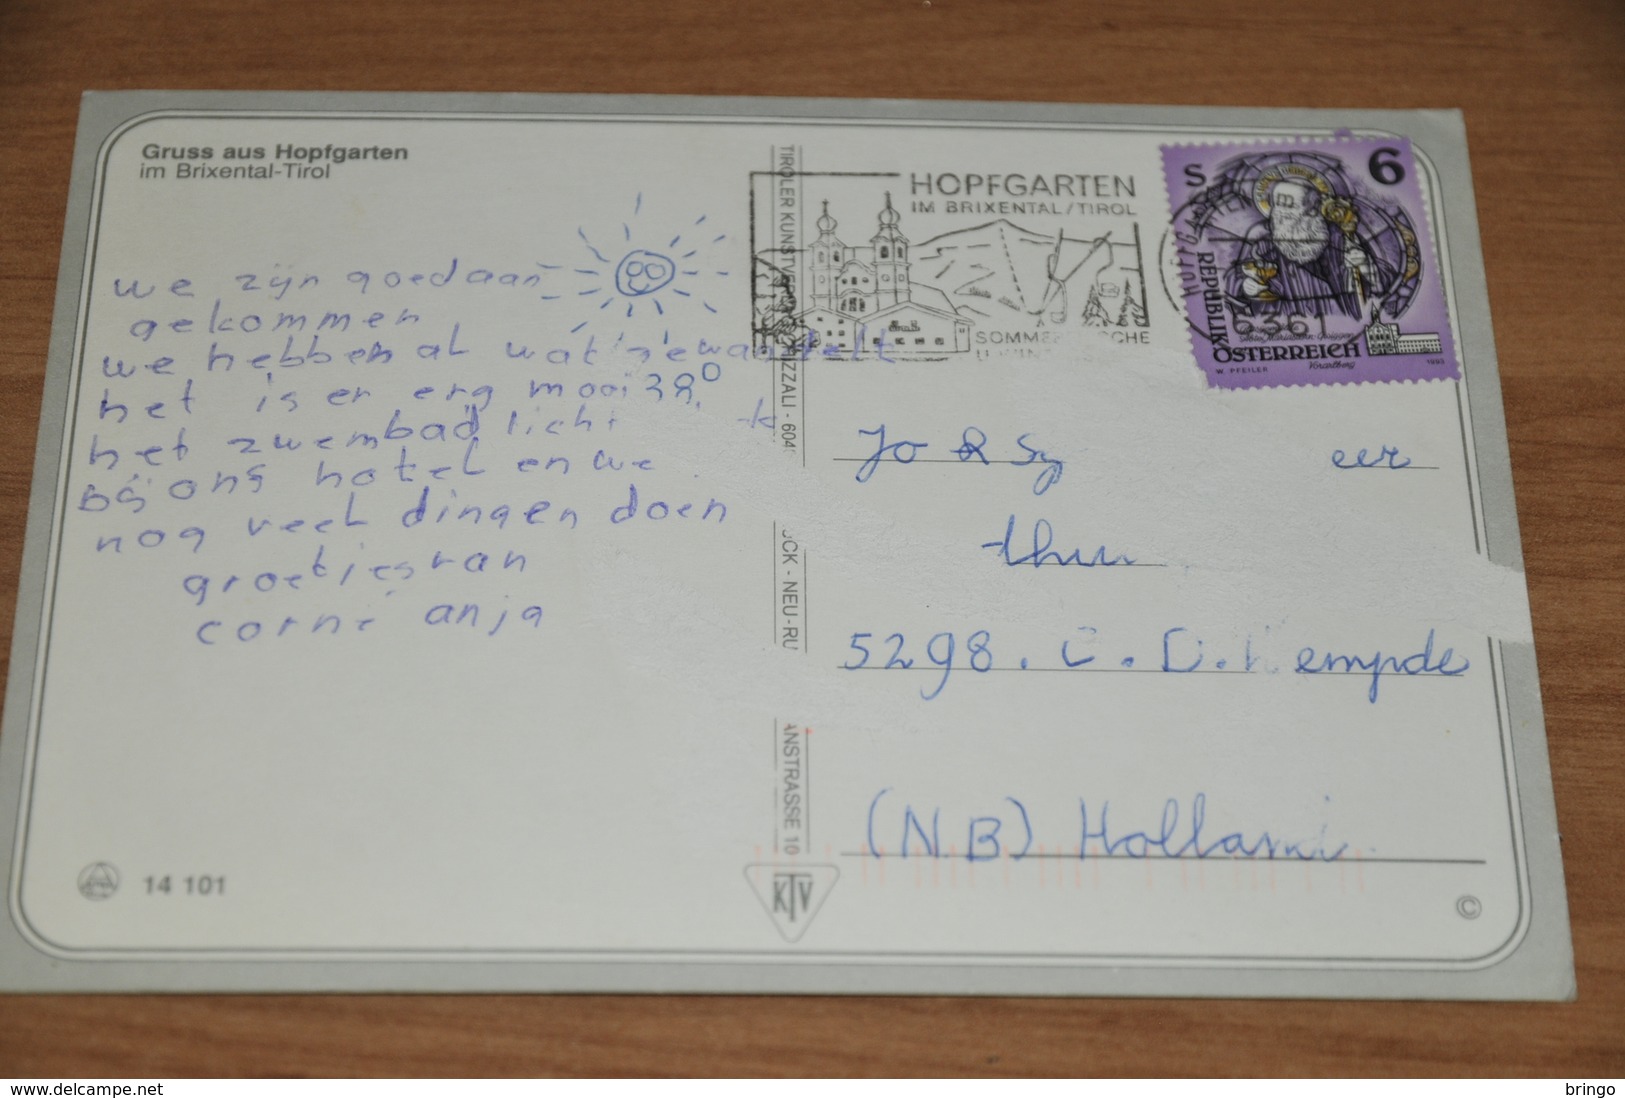 Gruss aus Hopfgarten
im Brixental-Tirol
we zijn goed aan
gekommen
we hebben al wat gewandelt
het is er erg mooi 38°
het zwembad licht
bij ons hotel en we
nog veel dingen doen
groetjes van
corné anja
14 101
TIROLER KUNSTVERLAG
ANSTRASSE 10
KTV
HOPFGARTEN
IM BRIXENTAL/TIROL
6361
S 6
REPUBLIK
ÖSTERREICH
W. PFEILER
1993
Jo & Sy eer
5298.
(N.B) Holland
©
delcampe.net
bringo